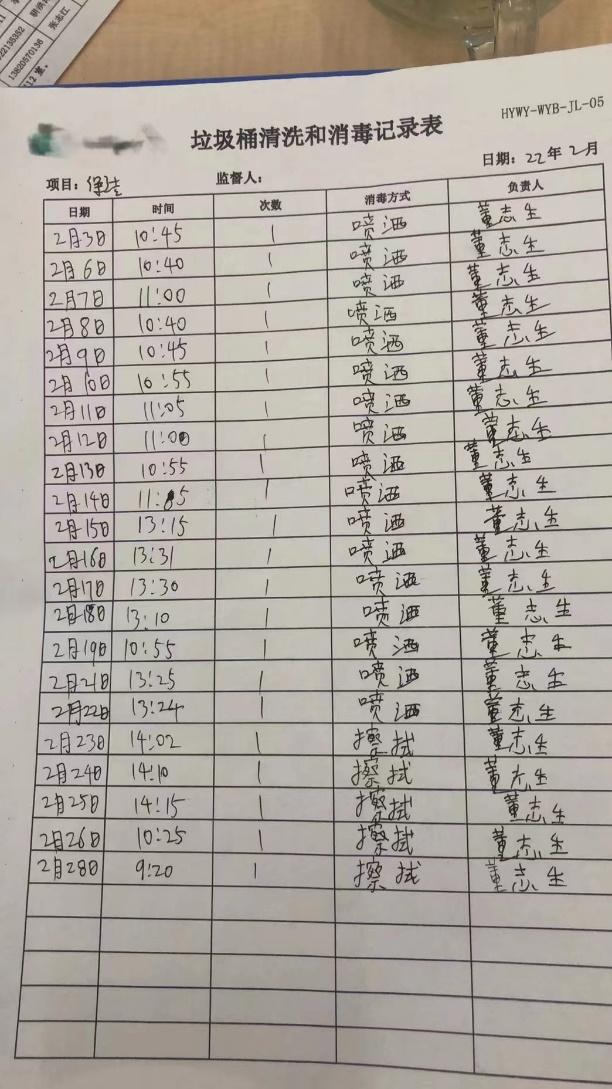 22135352
13820670136 张志江
HYWY-WYB-JL-05
垃圾桶清洗和消毒记录表
项目: 保洁 监督人: 日期: 22年2月
日期 时间 次数 消毒方式 负责人
2月3日 10:45 1 喷洒 董志生
2月6日 10:40 1 喷洒 董志生
2月7日 11:00 1 喷洒 董志生
2月8日 10:40 1 喷洒 董志生
2月9日 10:45 1 喷洒 董志生
2月10日 10:55 1 喷洒 董志生
2月11日 11:05 1 喷洒 董志生
2月12日 11:00 1 喷洒 董志生
2月13日 10:55 1 喷洒 董志生
2月14日 11:05 1 喷洒 董志生
2月15日 13:15 1 喷洒 董志生
2月16日 13:31 1 喷洒 董志生
2月17日 13:30 1 喷洒 董志生
2月18日 13:10 1 喷洒 董志生
2月19日 10:55 1 喷洒 董志生
2月21日 13:25 1 喷洒 董志生
2月22日 13:24 1 喷洒 董志生
2月23日 14:02 1 擦拭 董志生
2月24日 14:10 1 擦拭 董志生
2月25日 14:15 1 擦拭 董志生
2月26日 10:25 1 擦拭 董志生
2月28日 9:20 1 擦拭 董志生